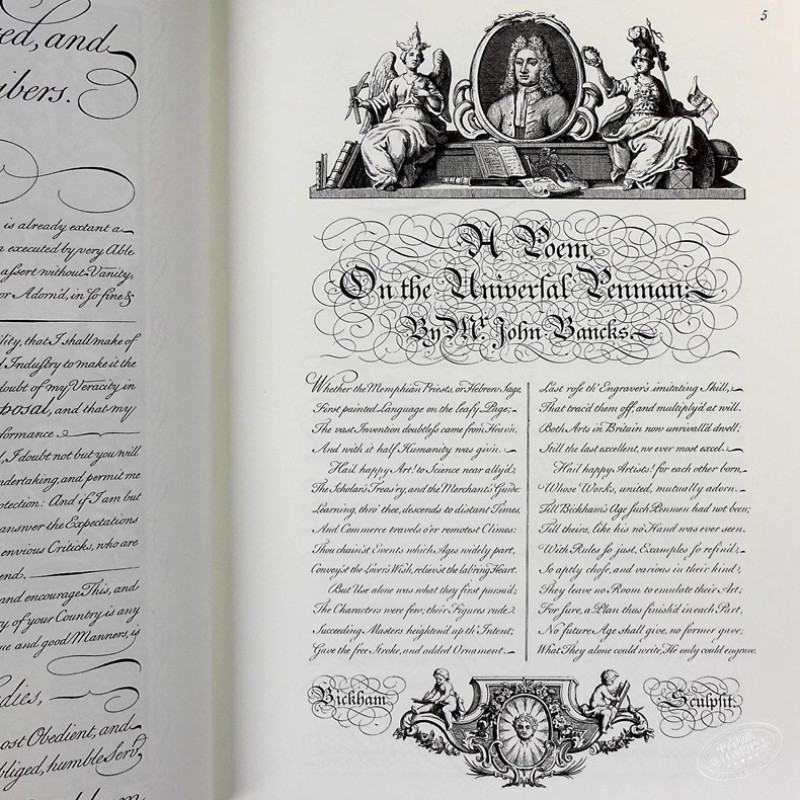 red, and
ibers.
is already extant a
n executed by very Able
assert without Vanity,
or Adorn'd, in so fine &
ility, that I shall make of
d Industry to make it the
doubt of my Veracity in
posal, and that my
formance.
d, I doubt not but you will
ndertaking, and permit me
otection: And if I am but
answer the Expectations
envious Criticks, who are
end.
and encourage This, and
y of your Country is any
ue and good Manners, is
dies,
ost Obedient, and
bliged, humble Serv.t
5
A Poem,
On the Universal Penman:
By Mr. John Bancks.
Whether the Memphian Priests, or Hebrew Sage
First painted Language on the leafy Page;
The vast Invention doubtless came from Heav'n,
And with it half Humanity was giv'n.
Hail happy Art! to Science near ally'd;
The Scholar's Treas'ry, and the Merchant's Guide.
Learning, thro' thee, descends to distant Times,
And Commerce travels o'er remotest Climes:
Thou chain'st Events which Ages widely part,
Convey'st the Lover's Wish, reliev'st the lab'ring Heart.
But Use alone was what they first pursu'd;
The Characters were few; their Figures rude.
Succeeding Masters heighten'd up th' Intent;
Gave the free Stroke, and added Ornament.
Last rose th' Engraver's imitating Skill,
That trac'd them off, and multiply'd at will.
Both Arts in Britain now unrivall'd dwell;
Still the last excellent, we ever most excel.
Hail happy Artists! for each other born
Whose Works, united, mutually adorn.
Till Bickham's Age such Penmen had not been;
Till theirs, like his no Hand was ever seen.
With Rules so just, Examples so refin'd;
So aptly chose, and various in their kind;
They leave no Room to emulate their Art;
For sure, a Plan thus finish'd in each Part,
No future Age shall give, no former gave;
What They alone could write, He only could engrave.
Bickham
Sculpsit.